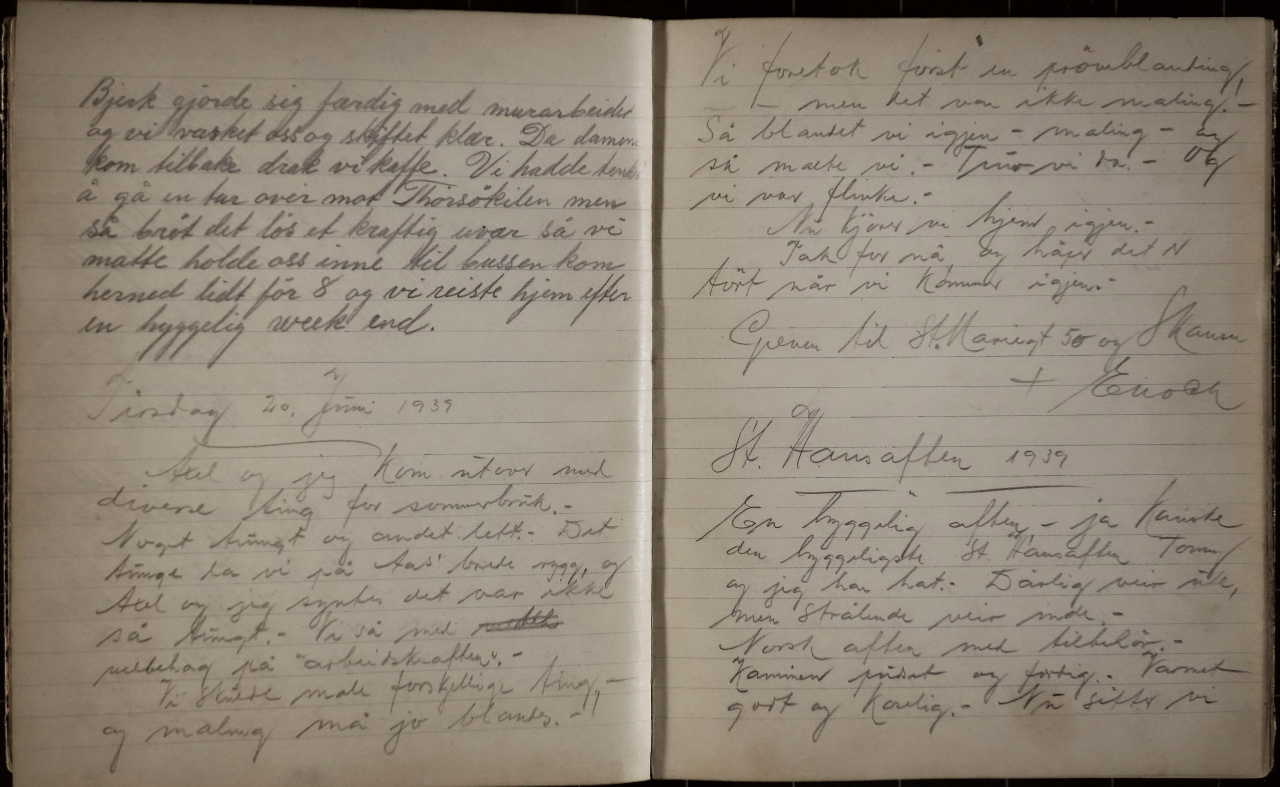 Bjerk gjorde sig færdig med murarbeidet
og vi vasket oss og skiftet klær. Da damene
kom tilbake drak vi kaffe. Vi hadde tenkt
å gå en tur over mot Thorsökilen men
så bröt det lös et kraftig uvær så vi
måtte holde oss inne til bussen kom
herned lidt för 8 og vi reiste hjem efter
en hyggelig week end.
Tirsdag 20. Juni 1939
Axel og jeg kom utover med
diverse ting for sommerbruk.-
Noget tungt og andet lett.- Det
tunge la vi på Aas' brede rygg, og
Axel og jeg syntes det var ikke
så tungt.- Vi så med
velbehag på "arbeidskraften".-
Vi skulde male forskjellige ting,-
og maling må jo blandes.-
Vi foretok först en pröveblanding,
- men det var ikke maling.-
Så blandet vi igjen - maling - og
så malte vi.- Tror vi da.- Og
vi var flinke.-
Nu kjörer vi hjem igjen.-
Tak for nå, og håper det er
tört når vi kommer igjen.-
til St. Mariegt 50 og
+ Enoch
St. Hansaften 1939
En hyggelig aften - ja kanske
den hyggeligste St. Hansaften Tommy
og jeg har hat.- Dårlig veir ute,
men strålende veir inde.-
Norsk aften med tilbehör.-
Kaminen pudset og färdig.- Varmet
godt og koselig.- Nu sitter vi